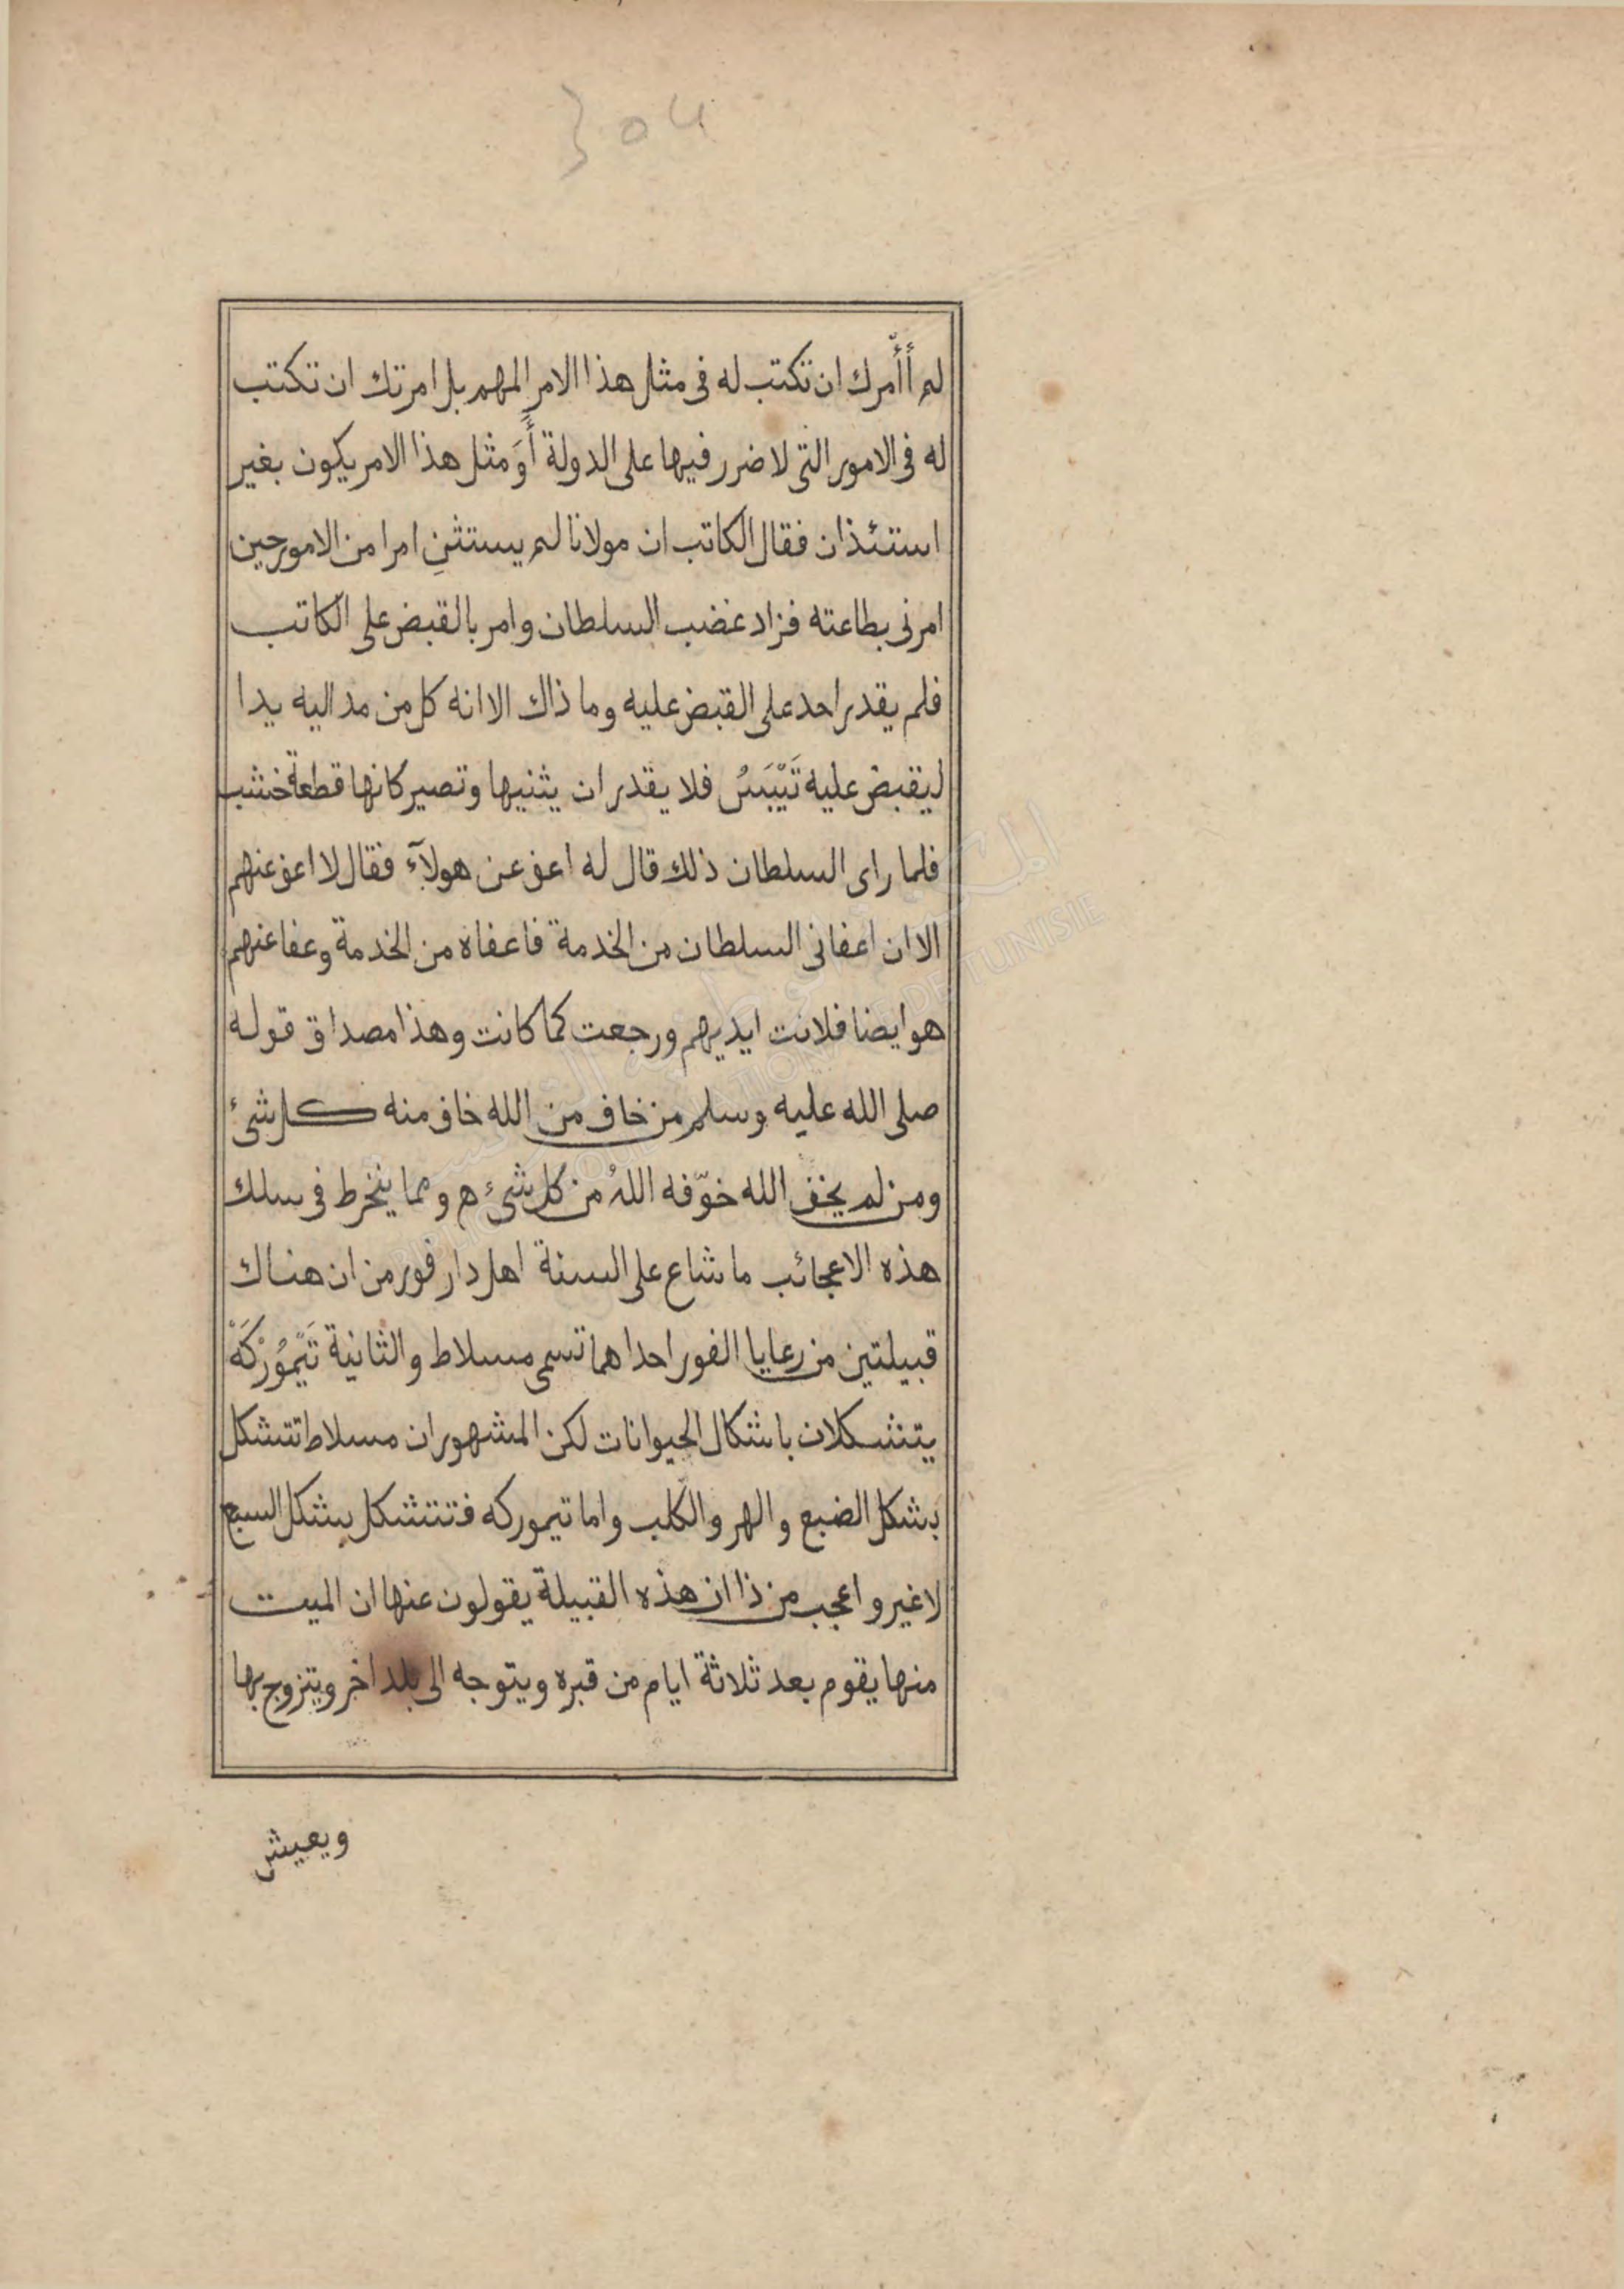 لم أأمّرك ان تكتب له فى مثل هذا الامر المهم بل امرتك ان تكتب
له فى الامور التى لا ضرر فيها على الدولة أَوَ مثل هذا الامر يكون بغير
استئذان فقال الكاتب ان مولانا لم يستثنِ امرا من الامور حين
امرنى بطاعته فزاد غضب السلطان وامر بالقبض على الكاتب
فلم يقدر احد على القبض عليه وما ذاك الا انه كل من مد اليه يدا
ليقبض عليه تَيْبَسُ فلا يقدر ان يثنيها وتصير كانها قطعة خشب
فلما راى السلطان ذلك قال له اعف عن هولآء فقال لا اعف عنهم
الا ان اعفانى السلطان من الخدمة فاعفاه من الخدمة وعفا عنهم
هو ايضا فلانت ايديهم ورجعت كما كانت وهذا مصداق قوله
صلى الله عليه وسلم من خاف من الله خاف منه كل شىء
ومن لم يخف الله خوّفه اللهُ من كل شىء ه ومما ينخرط فى سلك
هذه الاعجائب ما شاع على السنة اهل دار فور من ان هناك
قبيلتين من رعايا الفور احداهما تسمى مسلاط والثانية تَيْمُوُرْكَهْ
يتشكلان باشكال الحيوانات لكن المشهور ان مسلاط تتشكل
بشكل الضبع والهر والكلب واما تيموركه فتتشكل بشكل السبع
لا غير واعجب من ذا ان هذه القبيلة يقولون عنها ان الميت
منها يقوم بعد ثلاثة ايام من قبره ويتوجه الى بلد اخر ويتزوج بها
ويعيش
المكتبة الوطنية التونسية
BIBLIOTHEQUE NATIONALE DE TUNISIE